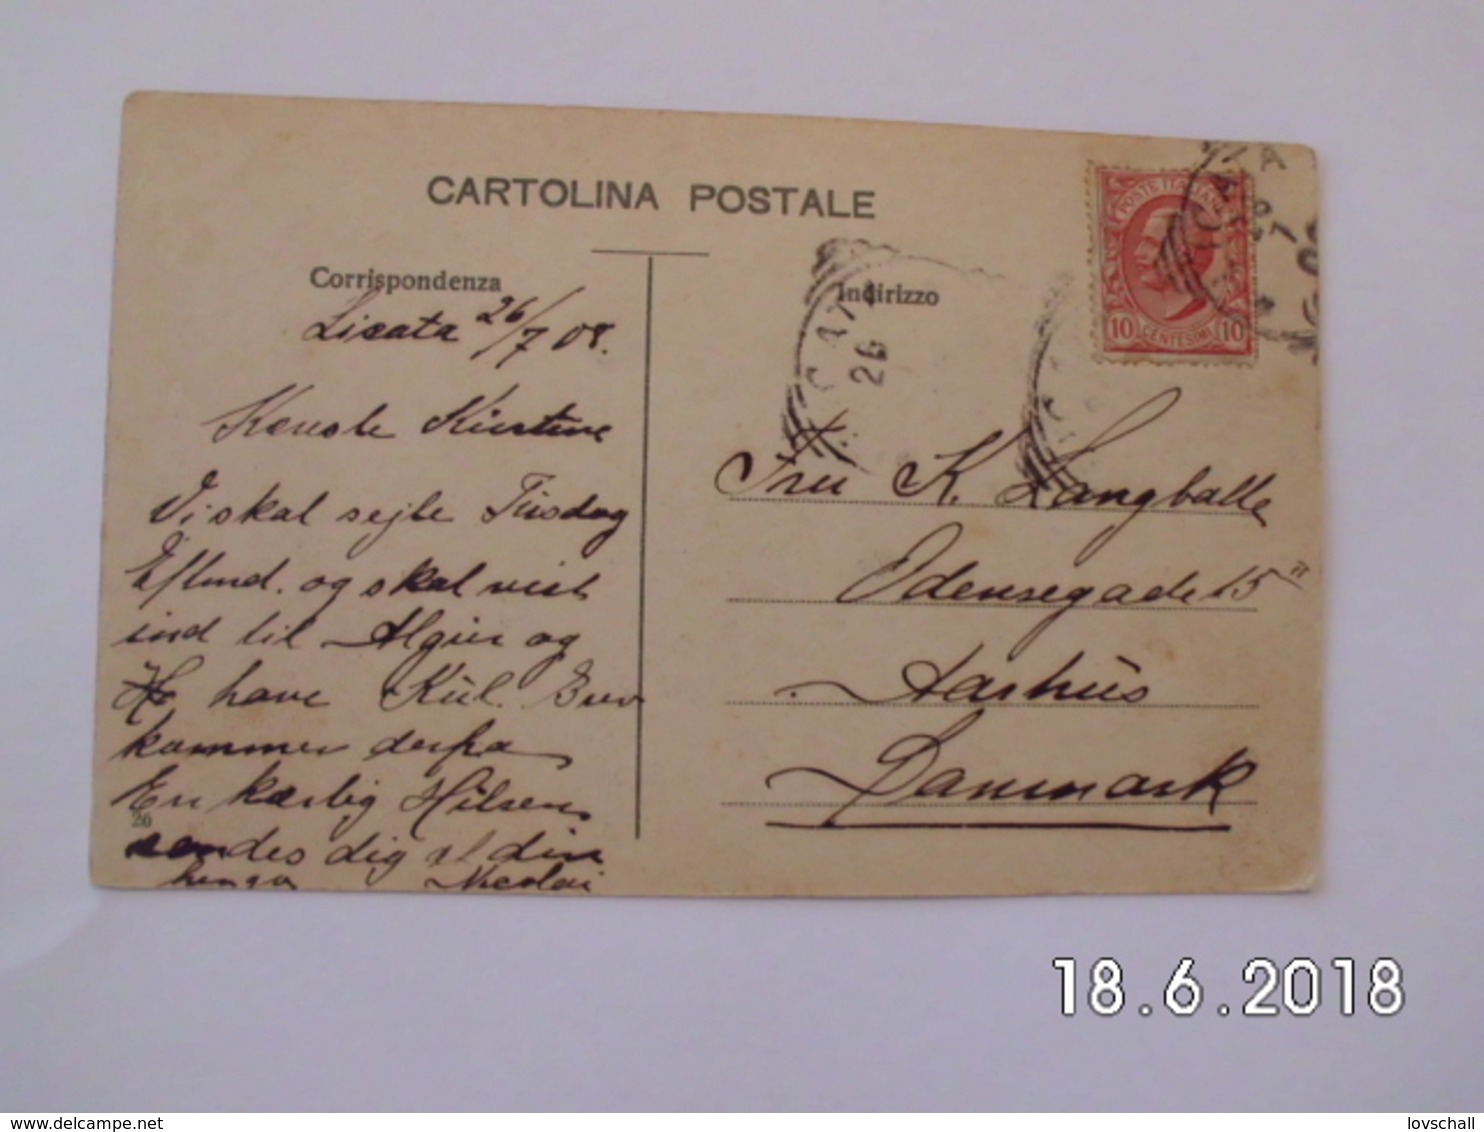 CARTOLINA POSTALE
Corrispondenza
Indirizzo
POSTE ITALIANE
10 CENTESIMI 10
26
Licata 26/7 08.
Kæreste Kirstine
Vi skal sejle Tirsdag
Eftmd. og skal vist
ind til Algier og
have Kul. Brev
kommer derfra
En kærlig Hilsen
sendes dig af din
Nicolai
20
Fru K. Langballe
Odensegade 15
Aarhus
Danmark
18.6.2018
delcampe.net
lovschall